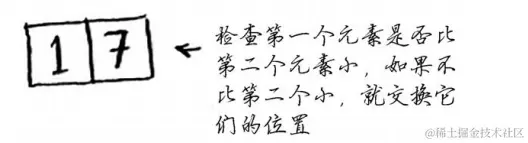 1 7
检查第一个元素是否比
第二个元素小，如果不
比第二个小，就交换它
们的位置
@稀土掘金技术社区